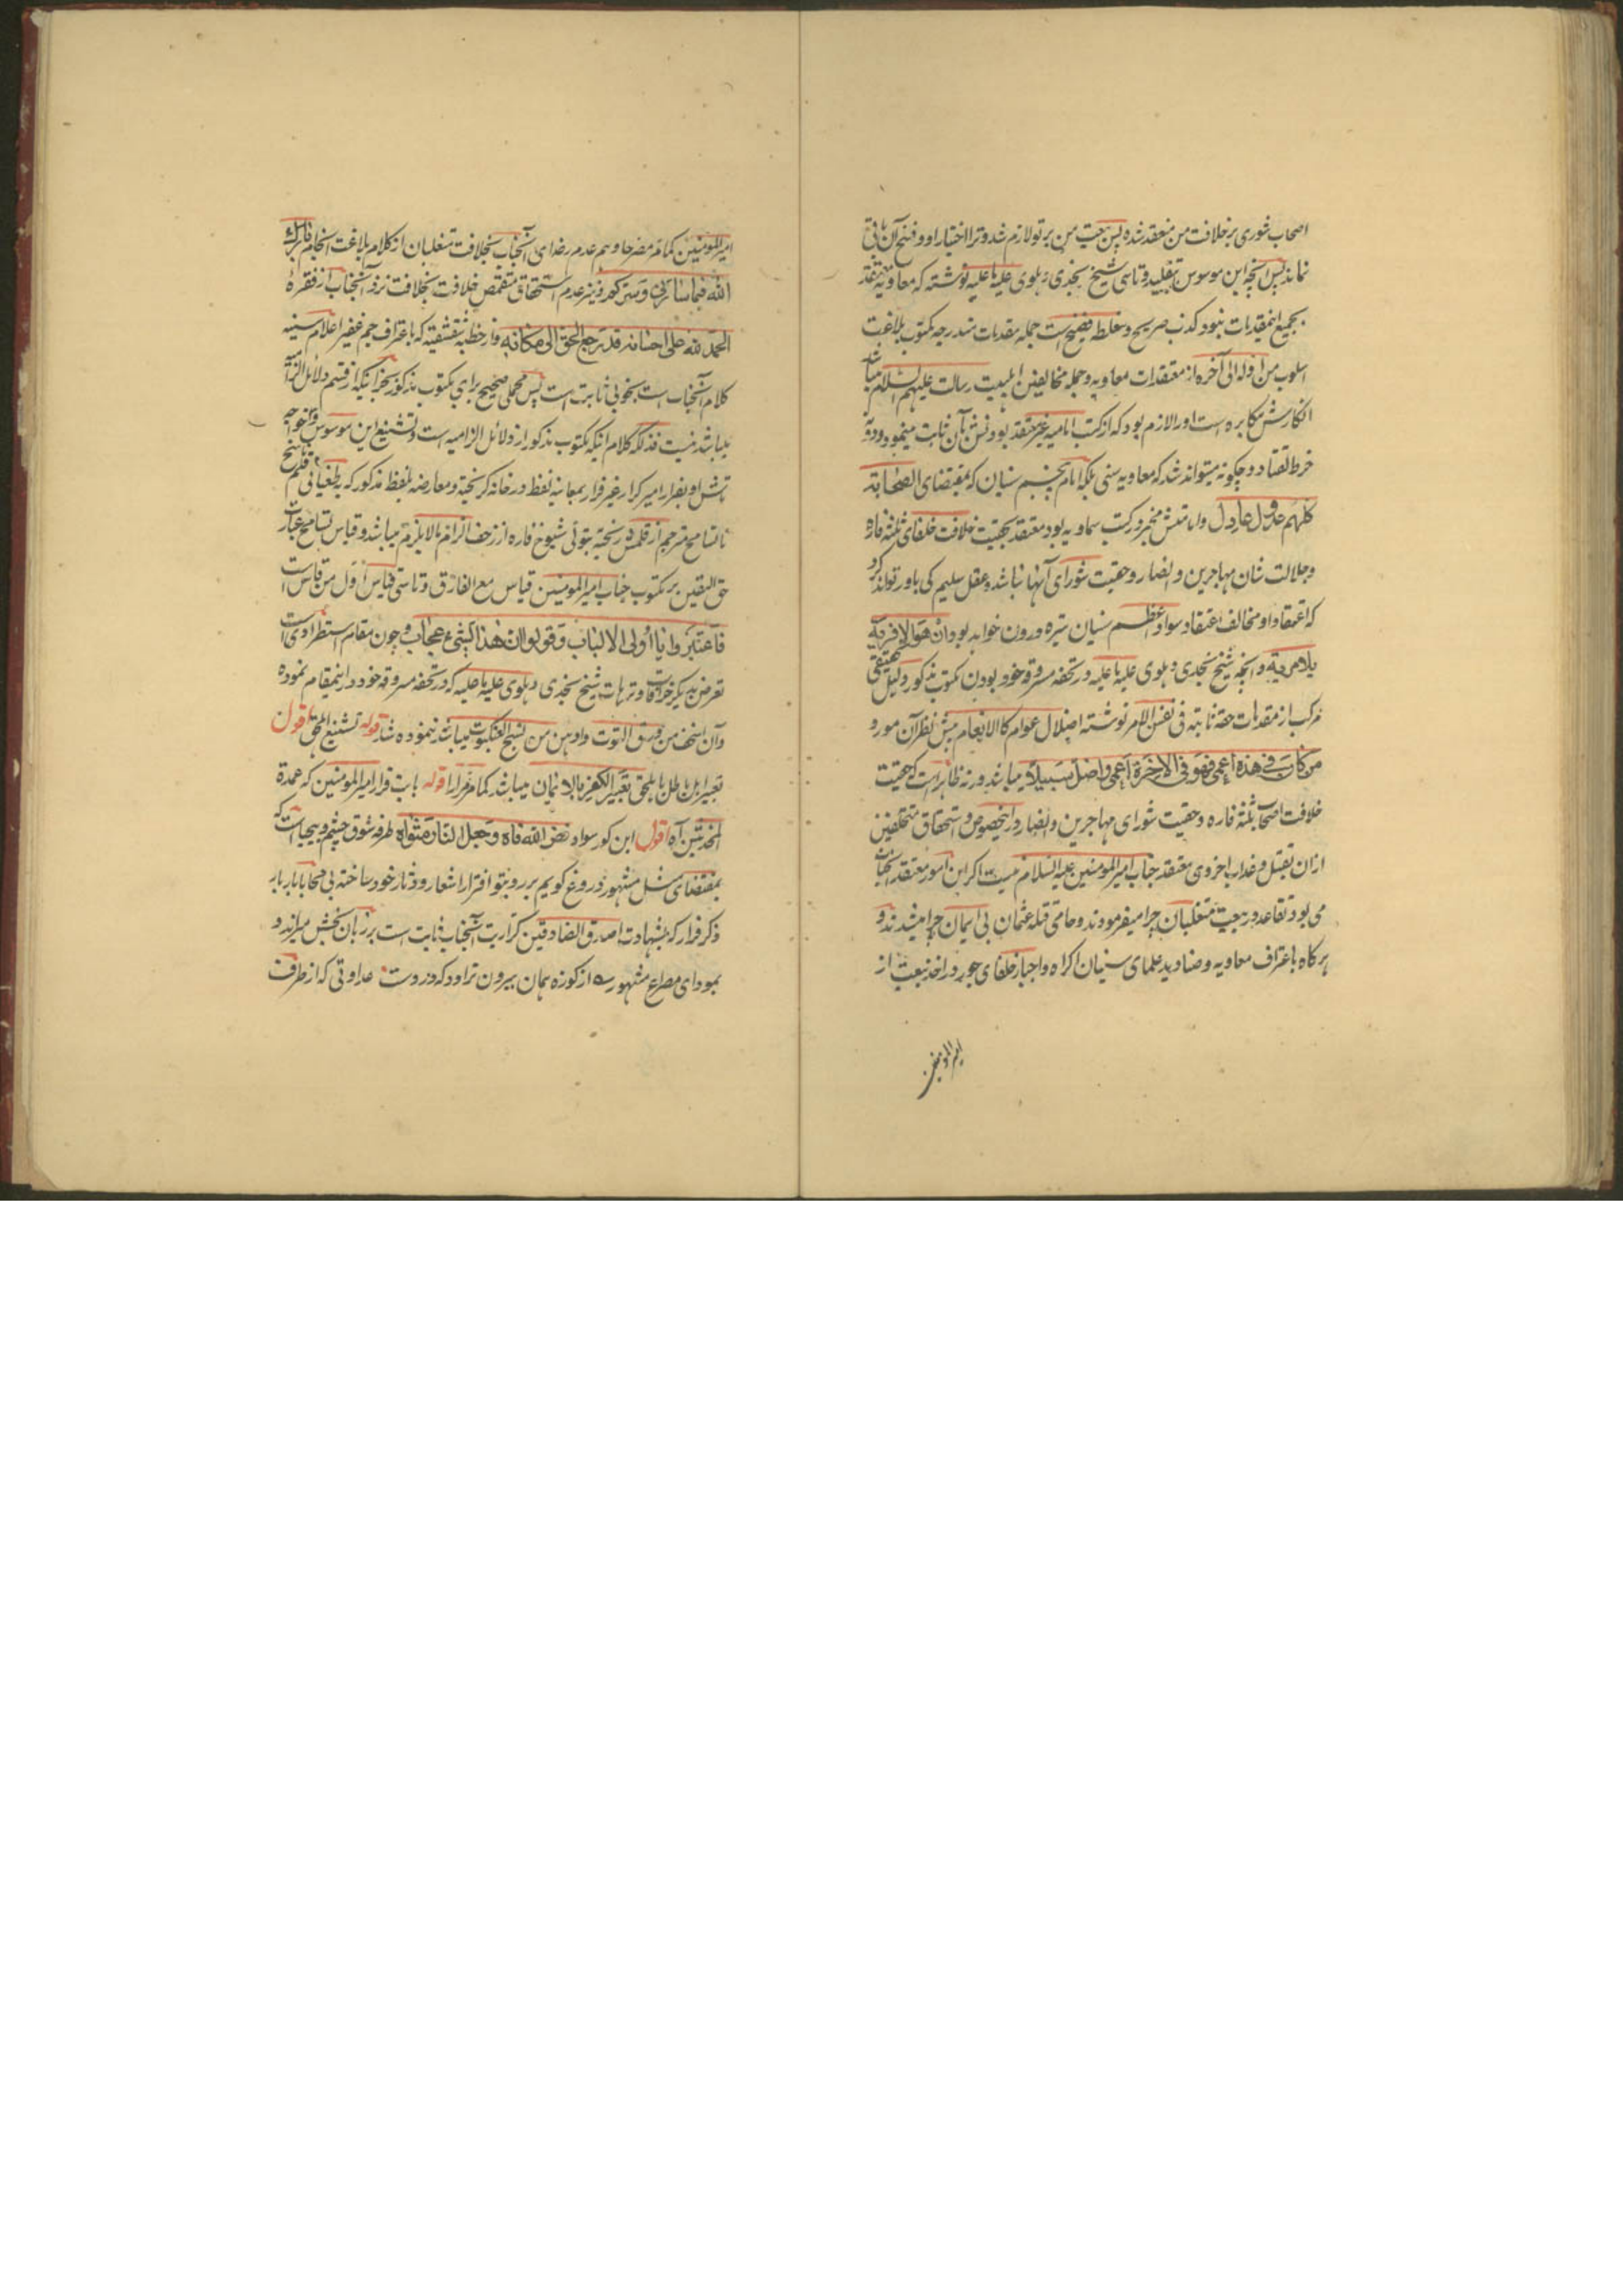 اصحاب شوری بر خلافت من منعقد شده پس حجت من بر تو لازم شد و ترا اختیار او و فسخ آن باقی
نماند پس آنچه این موسوس بتقلید و تاسی شیخ نجدی دهلوی علیه ما علیه نوشته که معاویه معتقد
بجمیع اینمقدمات نبود کذب صریح و غلط فضیح است جمله مقدمات مندرجه مکتوب بلاغت
اسلوب من اوله الی آخره از معتقدات معاویه و جمله مخالفین اهلبیت رسالت علیهم السلام میباشد
انکارش مکابره است او را لازم بود که از کتب امامیه غیر معتقد بودنش بآن ثابت مینمود و دونه
خرط القتاد و چگونه میتواند شد که معاویه سنی بلکه امام پنجم سنیان که بمقتضای الصحابة
کلهم عدول عادل و امامتش مخبر در کتب سماویه بود معتقد بحقیت خلافت خلفای ثلثه فاره
و جلالت شان مهاجرین و انصار و حقیت شورای آنها نباشد و عقل سلیم کی باور تواند کرد
که اعتقاد او مخالف اعتقاد سواد اعظم سنیان تیره درون خواهد بود ان هو الا فریه
بلا مریه و آنچه شیخ نجدی دهلوی علیه ما علیه در تحفه مسروقه خود بودن مکتوب مذکور دلیل تحقیقی
مرکب از مقدمات حقه ثابته فی نفس الامر نوشته اضلال عوام کالانعام پیش نظر آن مورد
من کان فی هذه اعمی فهو فی الاخرة اعمی و اضل سبیلا میباشد ورنه ظاهر است که حقیت
خلافت اصحاب ثلثه فاره و حقیت شورای مهاجرین و انصار در اینخصوص و استحقاق متخلفین
ازان بقتل و عذاب اخروی معتقد جناب امیر المومنین علیه السلام نیست اگر این امور معتقد آنجناب
می بود تقاعد در بیعت متغلبان چرا میفرمودند و حامی قتله عثمان بی ایمان چرا میشدند و
هر گاه باعتراف معاویه و صنادید علمای سنیان اکراه و اجبار خلفای جور در اخذ بیعت از
امیر المومنین
امیر المومنین کما مر مضر حا و هم عدم رضای آنجناب بخلافت متغلبان از کلام بلاغت انجام تبارک
الله فیما سائرنی و سترکم و نیز عدم استحقاق متقمص خلافت بخلافت نزد آنجناب از فقره
الحمد لله علی احسانه قد رجع الحق الی مکانه و از خطبه شقشقیه که باعتراف جم غفیر اعلام سنیه
کلام آنجناب است بخوبی ثابت است پس محملی صحیح برای مکتوب مذکور بجز اینکه از قسم دلائل الزامیه
میباشد نیست فذلکه کلام اینکه مکتوب مذکور از دلائل الزامیه است و تشنیع این موسوس و خواجه
تاشش او بفرار امیر کرار غیر فرار بمعاینه لفظ در خانه گریخته و معارضه بلفظ مذکور که بطغیانی قلم ناسخ
یا تسامح مترجم از قلمش ریخته بتولی شیوخ فاره از زحف الزام بالا یلزم میباشد و قیاس تسامح عبارت
حق الیقین بر مکتوب جناب امیر المومنین قیاس مع الفارق و تاسی قیاس اول من قاس است
فاعتبروا یا اولی الالباب و قولوا ان هذا لشیء عجاب و چون مقام استطرادی است
تعرض بدیگر خرافات و ترهات شیخ نجدی دهلوی علیه ما علیه که در تحفه مسروقه خود در اینمقام نموده
و آن اسخف من ورق التوت و اوهن من نسج العنکبوت میباشد ننموده شد قوله تشنیع المحق اقول
تعبیر اهل باطل باهل حق تعبیر الکفر بالایمان میباشد کما مر مرارا قوله بابت فرار امیر المومنین که عمدة
المحدثین آه اقول این کور سواد فض الله فاه و جعل النار مثواه طرفه شوق چشم و بیحیا است که
بمقتضای مثل مشهور دروغ گویم بر روی تو افترا را شعار و دثار خود ساخته بی محابا بار بار
ذکر فرار که بشهادت اصدق الصادقین کراریت آنجناب ثابت است بر زبان نجس میراند و
بمودای مصراع مشهور ؎ از کوزه همان بیرون تراود که دروست عداوتی که از طرف